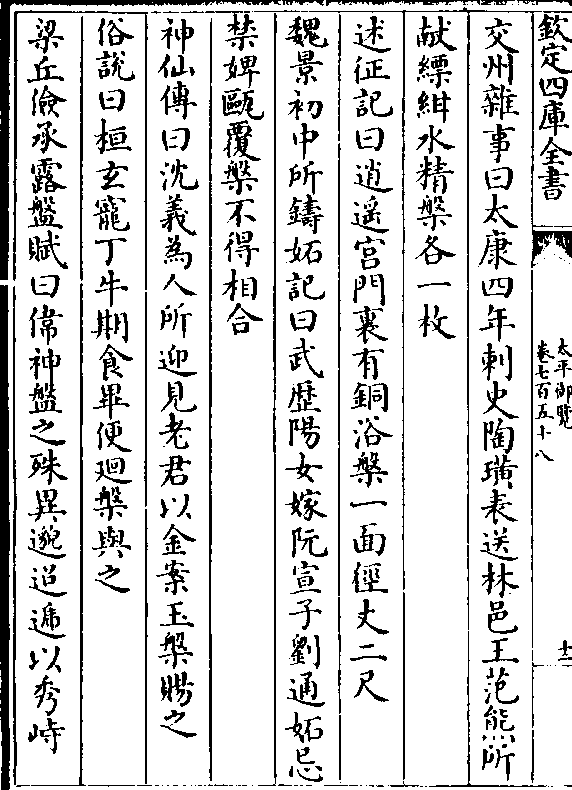 欽定四庫全書
太平御覽
卷七百五十八
十一
交州雜事曰太康四年刺史陶璜表送林邑王范熊所
献縹紺水精槃各一枚
述征記曰逍遥宫門裏有銅浴槃一面徑丈二尺
魏景初中所鑄妬記曰武歴陽女嫁阮宣子劉通妬忌
禁婢甌覆槃不得相合
神仙傳曰沈義為人所迎見老君以金案玉槃賜之
俗說曰桓玄寵丁牛期食畢便廻槃與之
梁丘儉承露盤賦曰偉神盤之殊異邈迢遞以秀峙